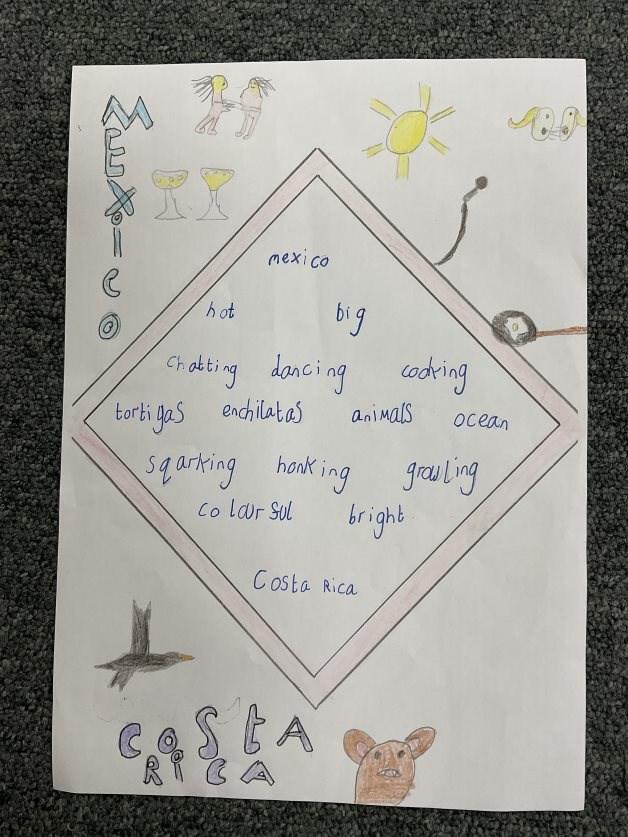 MExico
mexico
hot big
chatting dancing cooking
tortigas enchilatas animals ocean
sqarking honking growling
colourful bright
Costa Rica
COStA
RiCA